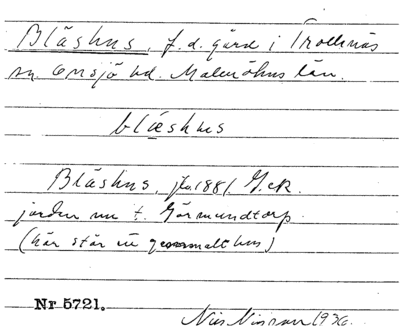 Blåshus, f.d. gård i Trollenäs
sn. Onsjö hd. Malmöhus län.
blåshus
Blåshus, fr. 1881 G.ek.
jorden nu t. Görmundtorp
(här står ett gammalt hus)
Nr 5721.
Nils Nilsson 1936.